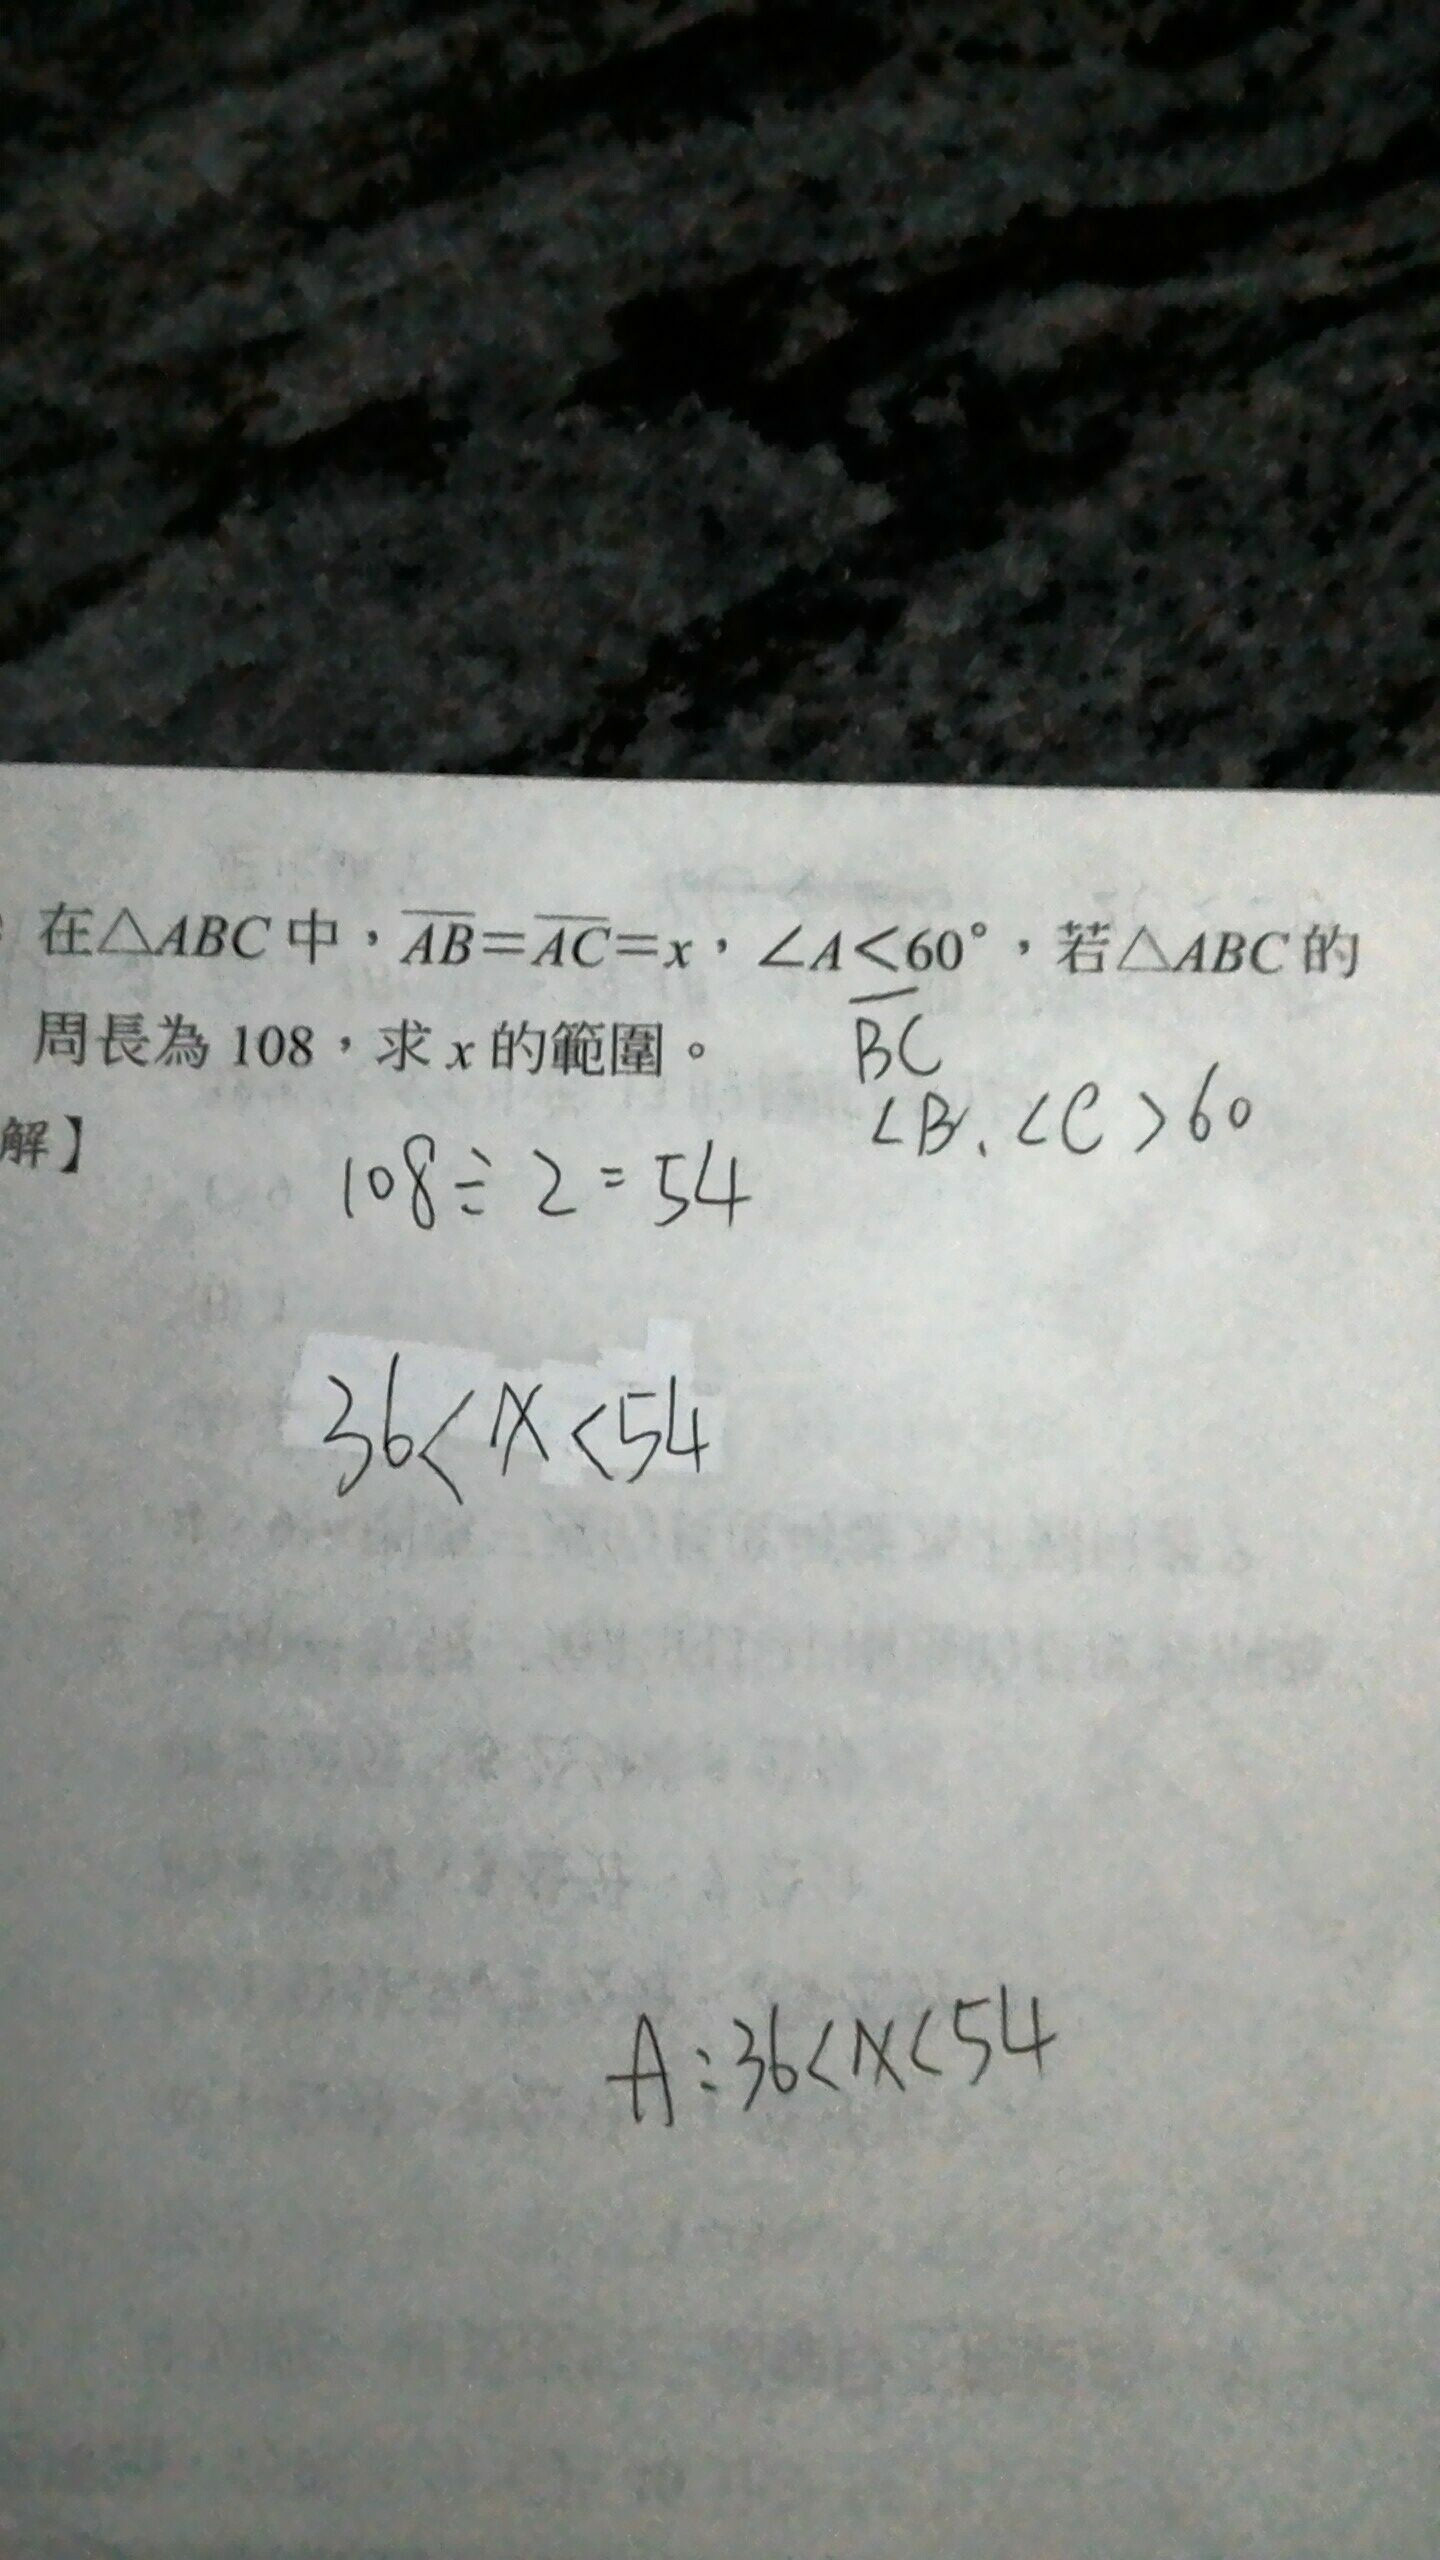 在△ABC中，AB=AC=x，∠A<60°，若△ABC的
周長為108，求x的範圍。
BC
<B、<C>60
解】
108÷2=54
36<x<54
A:36<x<54